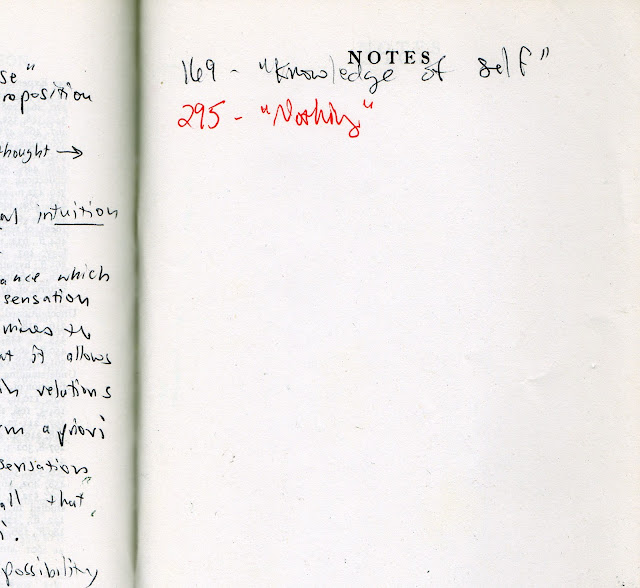 se"
roposition
thought →
al intuition
ance which
sensation
mines the
at it allows
in relations
rm a priori
sensation
all that
i.
possibility
NOTES
169 - "Knowledge of self"
295 - "Nothing"